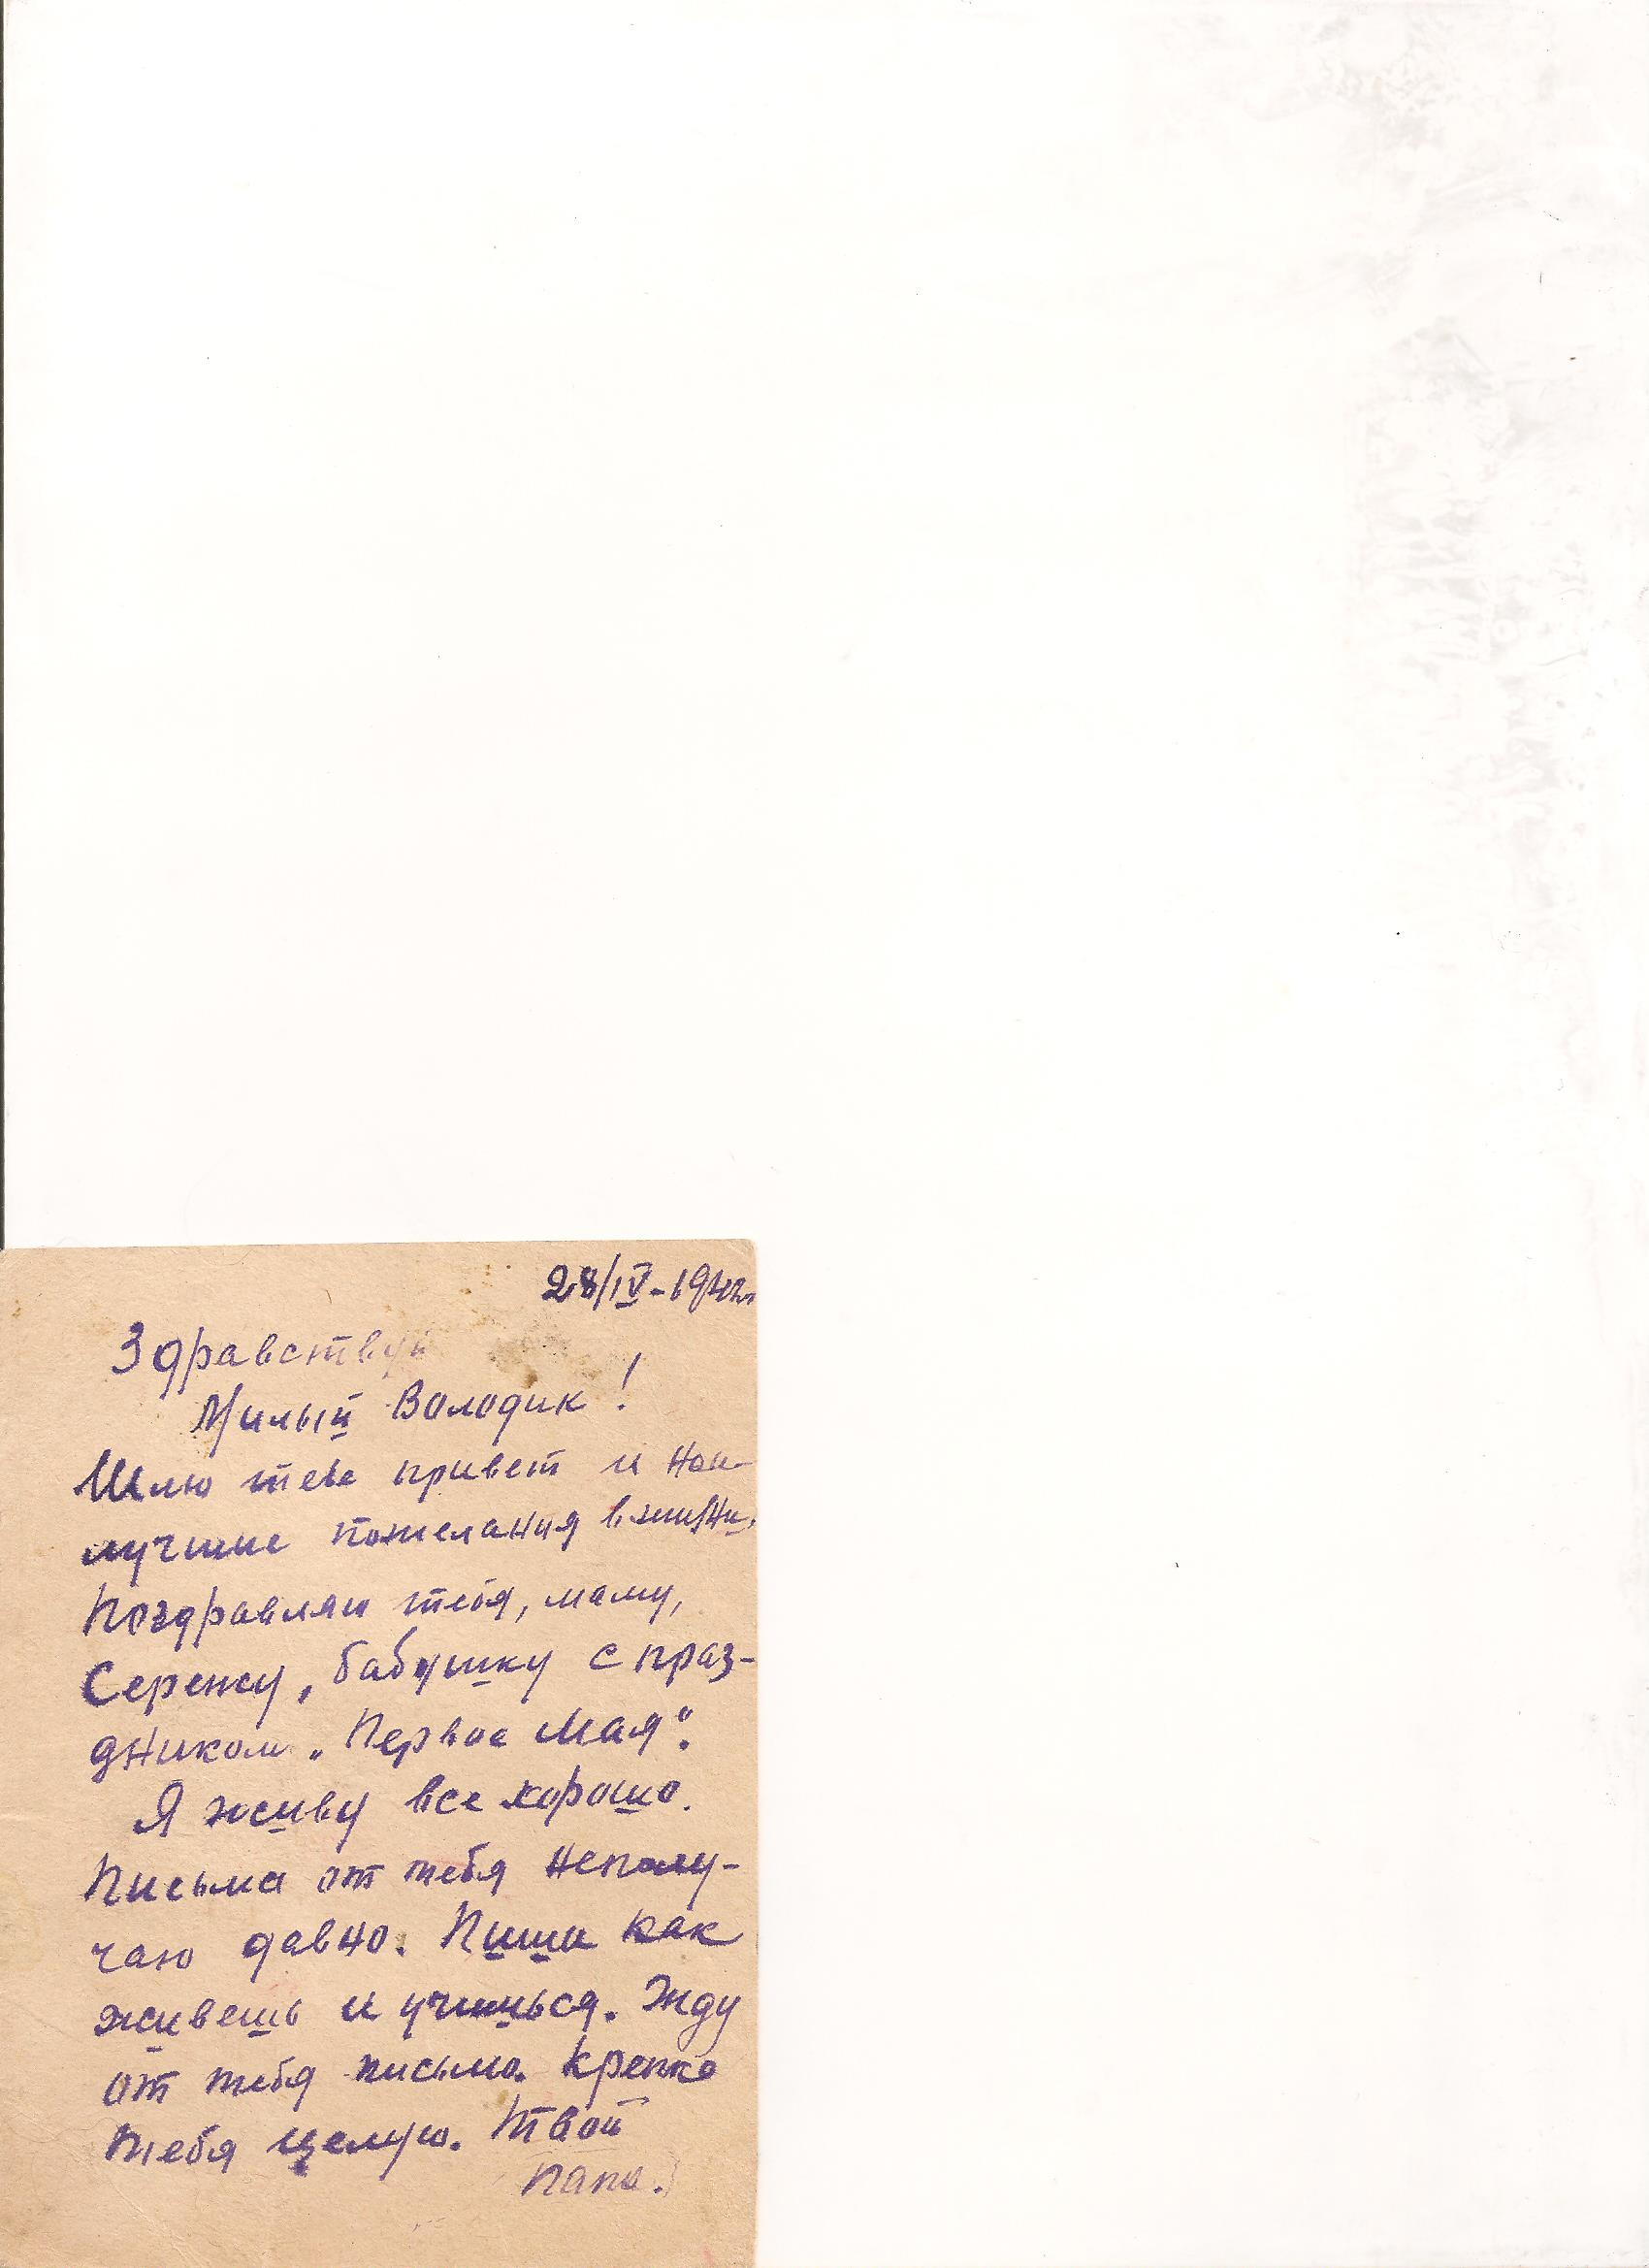 28/IV-1942г
Здравствуй
Милый Володик!
Шлю тебе привет и наи-
лучшие пожелания в жизни.
Поздравляю тебя, маму,
Сережу, бабушку с праз-
дником „Первое Мая“.
Я живу все хорошо.
Письма от тебя неполу-
чаю давно. Пиши как
живешь и учишься. Жду
от тебя письмо. Крепко
тебя целую. Твой
папа.